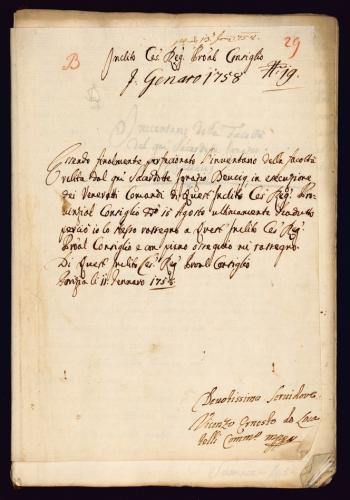 29
B
Inclito Ces: Reg: Prõal Consiglio
J. Genaro 1758
Nr: 19.
Essendo finalmente perfecionato l'inventario della facoltà
relita dal qm Sacerdote Ignazio in executione
dei Venerati Comandi di Quest' Inclito Ces: Reg: Pro
vinzial Consiglio 15 Agosto ultimamente scaduto
perciò io lo stesso rassegno a Quest' Inclito Ces: Reg:
Prõal Consiglio e con pieno ossequio mi rassegno.
Di Quest' Inclito Ces: Reg: Prõale Consiglio
Gorizia li 11. Gennaro 1758.
Devotissimo Servidore
Vicenzo Ernesto de Loca
telli Commo